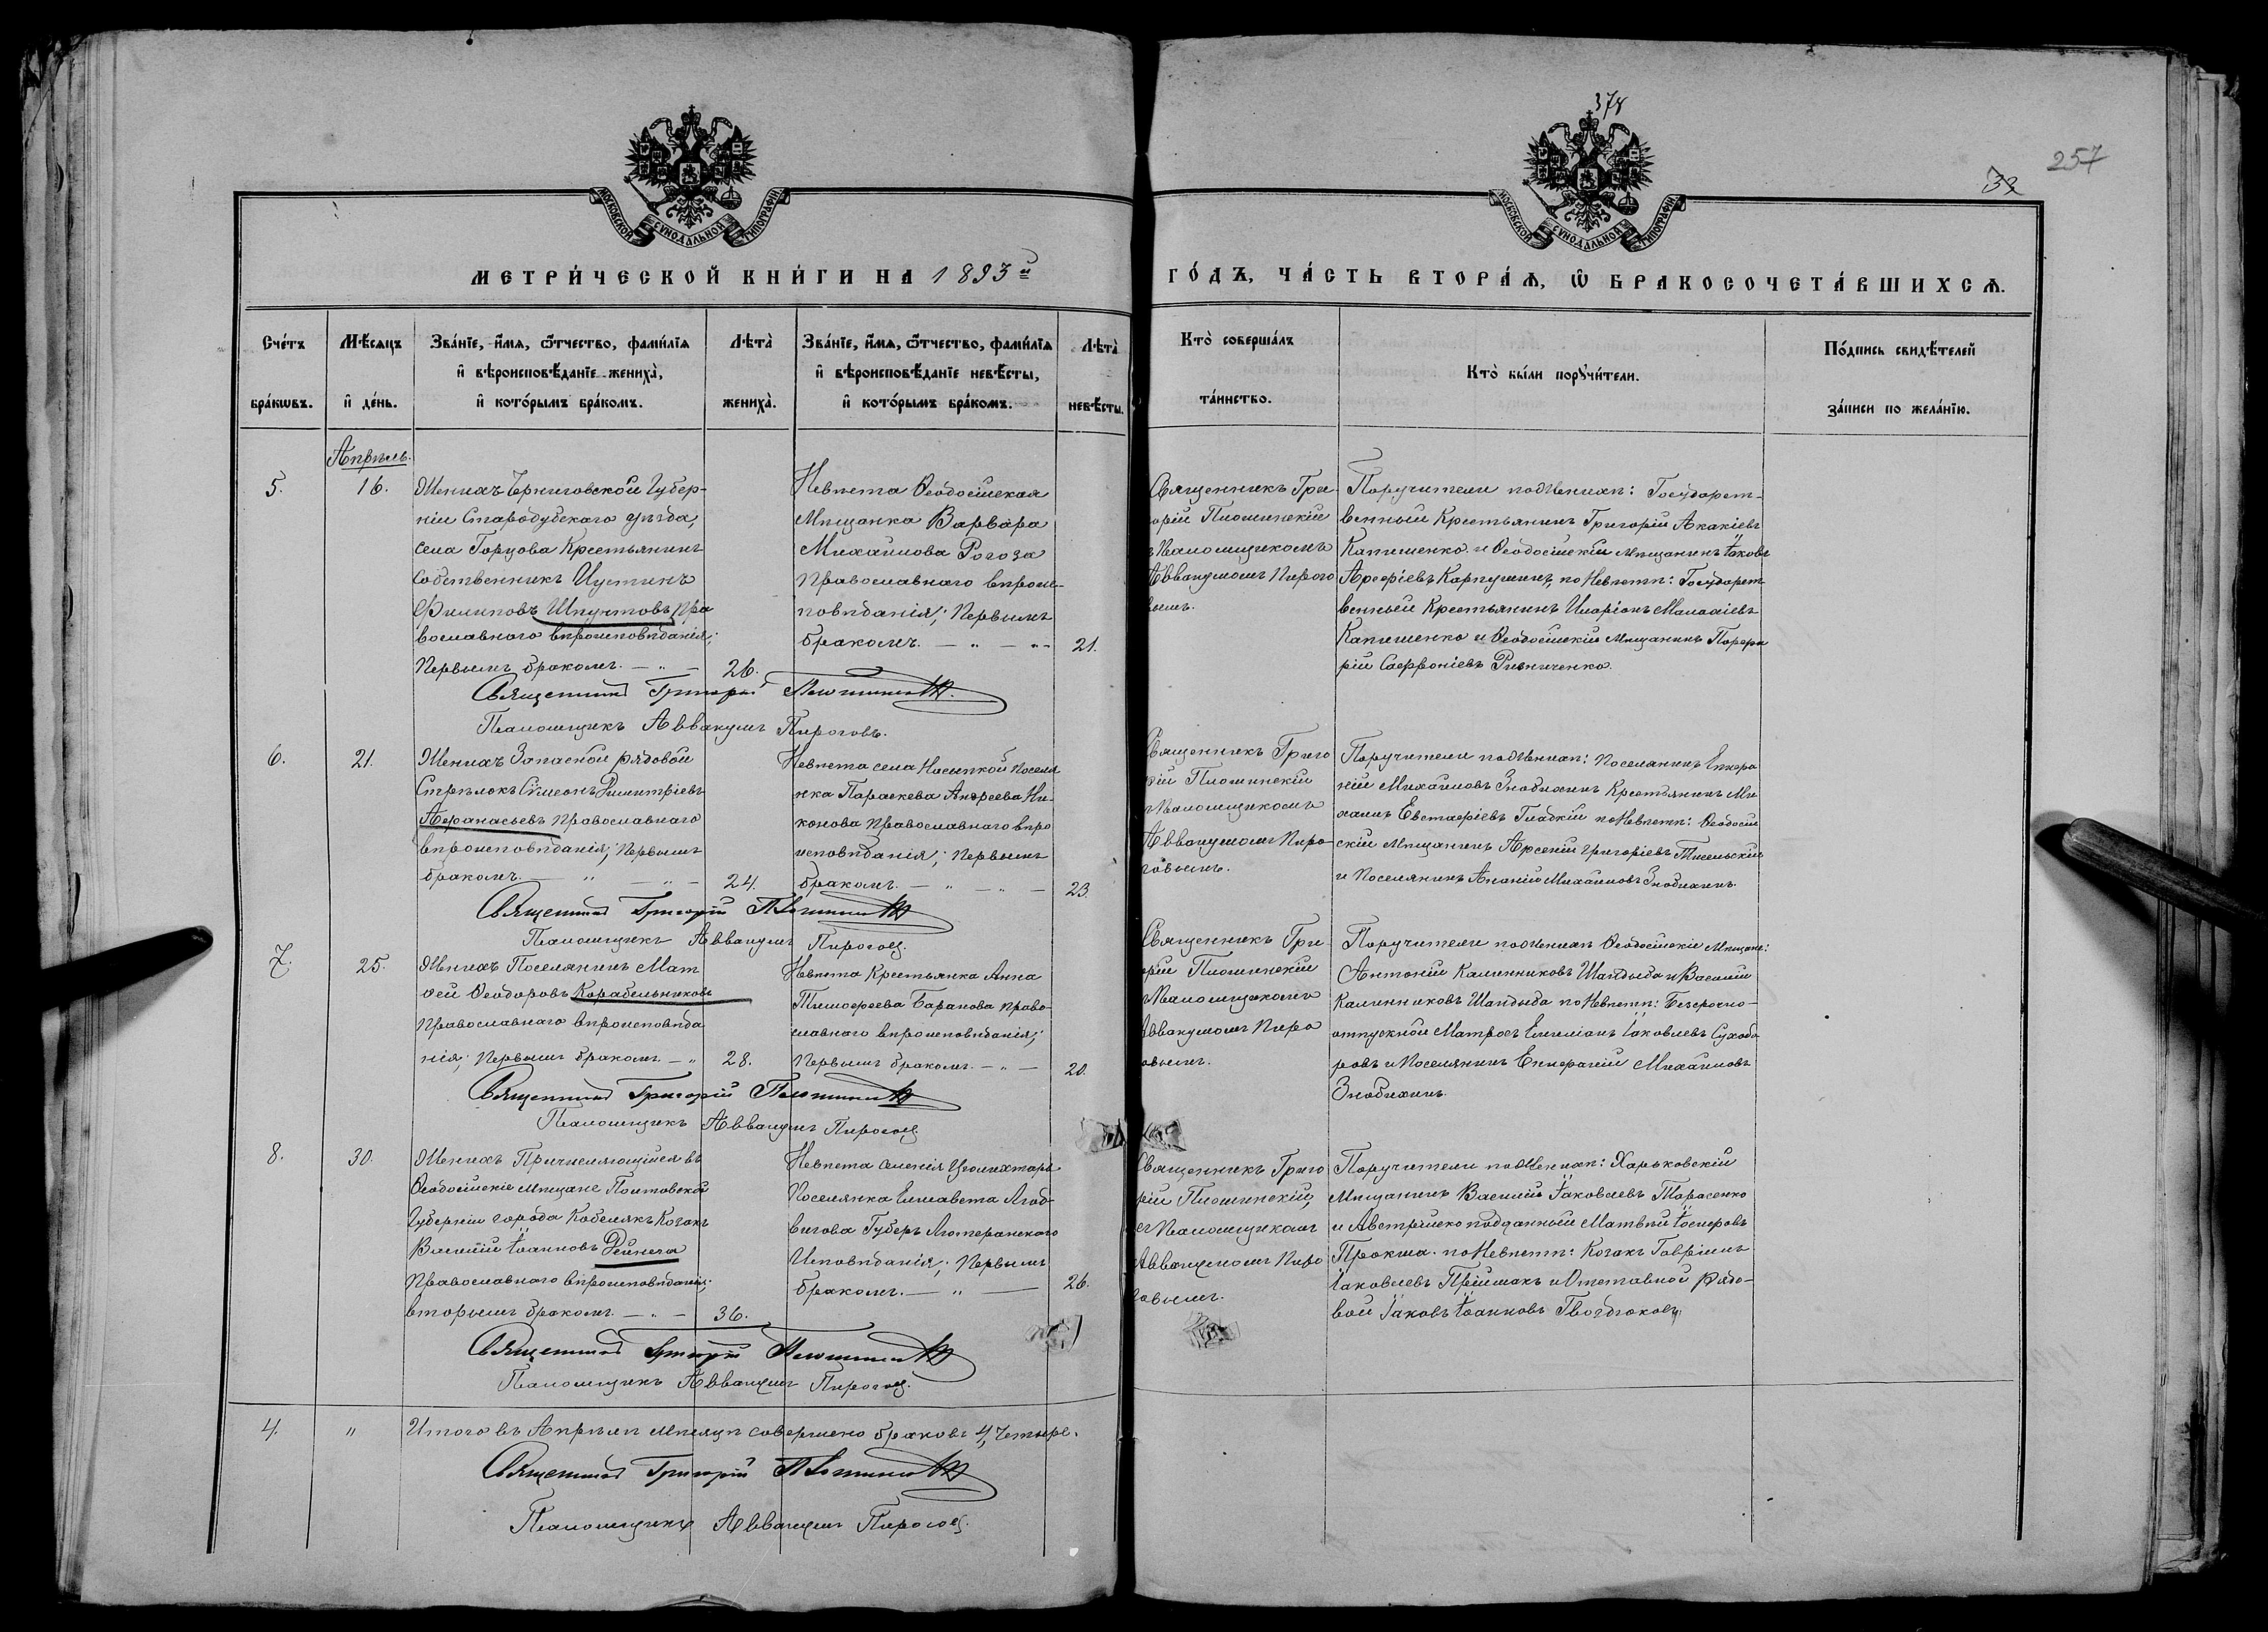 378
257
32
МОСКОВСКОЙ СУНОДАЛЬНОЙ ТИПОГРАФІИ
МОСКОВСКОЙ СУНОДАЛЬНОЙ ТИПОГРАФІИ
МЕТРИ́ЧЕСКОЙ КНИ́ГИ НА 1893й
ГО́ДЪ, ЧА́СТЬ ВТОРА́Я, Ѡ БРАКОСОЧЕТА́ВШИХСЯ.
Сче́тъ
бра́кѡвъ.
Мѣ́сяцъ
и҆ де́нь.
Зва́нїе, и҆́мя, ѻ҆́тчество, фами́лїя
и҆ вѣроисповѣ́данїе жениха̀,
и҆ кото́рымъ бра́комъ.
Лѣ́та̀
жениха̀.
Зва́нїе, и҆́мя, ѻ҆́тчество, фами́лїя
и҆ вѣроисповѣ́данїе невѣ́сты,
и҆ кото́рымъ бра́комъ.
Лѣ́та̀
невѣ́сты.
Кто̀ соверша́лъ
та́инство.
Кто̀ бы́ли порꙋчи́тели.
По́дпись свидѣ́телей
за́писи по жела́нїю.
Апрѣль.
5.
16.
Женихъ Черниговской Губер-
ніи Стародубскаго уѣзда,
села Горцова Крестьянинъ
Собственникъ Иустинъ
Филиповъ Шпунтовъ Пра
вославнаго вѣроисповѣданія;
Первымъ бракомъ. — „ —
26.
Невѣста Ѳеодосійская
Мѣщанка Варвара
Михаилова Рогоза
Православнаго вѣроис-
повѣданія; Первымъ
бракомъ. — „ — „ -
21.
Священникъ Гри
орій Плошинскій
Псаломщикомъ
Аввакумомъ Пирого
вымъ.
Поручители по Женихѣ: Государст-
венный Крестьянинъ Григорій Акакіевъ
Капшенко и Ѳеодосійскій Мѣщанинъ Іаковъ
Арсеніевъ Карпушинъ, по Невѣстѣ: Государст
венный Крестьянинъ Иларіонъ Малахіевъ
Капшенко и Ѳеодосійскій Мѣщанинъ Порфи
рій Софроніевъ Ривниченко.
Священникъ Григорій Плошинскій.
Псаломщикъ Аввакумъ Пироговъ.
6.
21.
Женихъ Запасной рядовой
Стрѣлокъ Симеонъ Димитріевъ
Афанасьевъ Православнаго
вѣроисповѣданія; Первымъ
бракомъ. — „ — „ —
24.
Невѣста села Насыпкой Поселя
нка Параскева Андреева Ни-
конова Православнаго вѣро
исповѣданія; Первымъ
бракомъ. — „ — „ —
23.
Священникъ Григо
рій Плошинскій
Псаломщикомъ
Аввакумомъ Пиро
говымъ.
Поручители по Женихѣ: Поселянинъ Епифа
ній Михаиловъ Знобихинъ Крестьянинъ Ми
хаилъ Евстафіевъ Гладкій по Невѣстѣ: Ѳеодосій
скій Мѣщанинъ Арсеній Григоріевъ
и Поселянинъ Ананій Михаиловъ Знобихинъ.
Священникъ Григорій Плошинскій
Псаломщикъ Аввакумъ Пироговъ.
7.
25.
Женихъ Поселянинъ Мат
ѳей Ѳеодоровъ Корабельниковъ
Православнаго вѣроисповѣда
нія; Первымъ бракомъ — „
28.
Невѣста Крестьянка Анна
Тимофеева Баранова Право-
славнаго вѣроисповѣданія;
Первымъ бракомъ. — „ —
20.
Священникъ Гри
орій Плошинскій
Псаломщикомъ
Аввакумомъ Пиро
овымъ.
Поручители по Женихѣ Ѳеодосійскіе Мѣщане:
Антоній Калинниковъ Шандыба и Василій
Калинниковъ Шандыба по Невѣстѣ: Безсрочно-
отпускной Матросъ Емиліанъ Іаковлевъ Сухобо
ровъ и Поселянинъ Епифаній Михаиловъ
Знобихинъ.
Священникъ Григорій Плошинскій
Псаломщикъ Аввакумъ Пироговъ.
8.
30.
Женихъ Причисляющійся въ
Ѳеодосійскіе Мѣщане Полтовской
Губерніи города Кобелякъ Козакъ
Василій Іоанновъ Дейнега
Православнаго вѣроисповѣданія;
вторымъ бракомъ. — „ —
36.
Невѣста селенія Цюрихталь
Поселянка Елисавета Люд-
вигова Губеръ Лютеранскаго
Исповѣданія; Первымъ
бракомъ. — „ —
26.
Священникъ Григо
рій Плошинскій,
съ Псаломщикомъ
Аввакумомъ Пиро
говымъ.
Поручители по Женихѣ: Харьковскій
Мѣщанинъ Василій Іаковлевъ Тарасенко
и Австрійско подданный Матвѣй Іосифовъ
Прокша. по Невѣстѣ: Козакъ Гавріилъ
Іаковлевъ Пріймакъ и Отставной рядо-
вой Іаковъ Іоанновъ Гвоздюковъ.
Священникъ Григорій Плошинскій
Псаломщикъ Аввакумъ Пироговъ.
4.
„
Итого въ Апрѣлѣ мѣсяцѣ совершено браковъ 4, Четыре.
Священникъ Григорій Плошинскій
Псаломщикъ Аввакумъ Пироговъ.